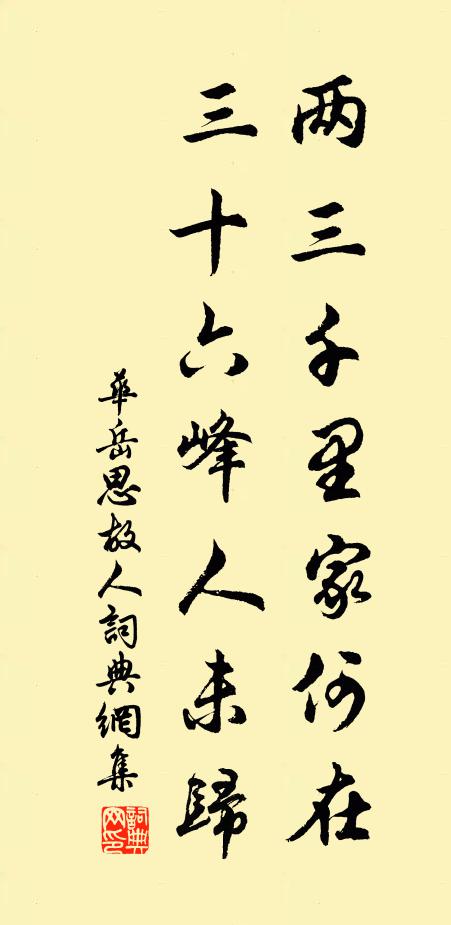 两三千里家何在
三十六峰人未歸
華岳思故人詞典網集
詞典
网印